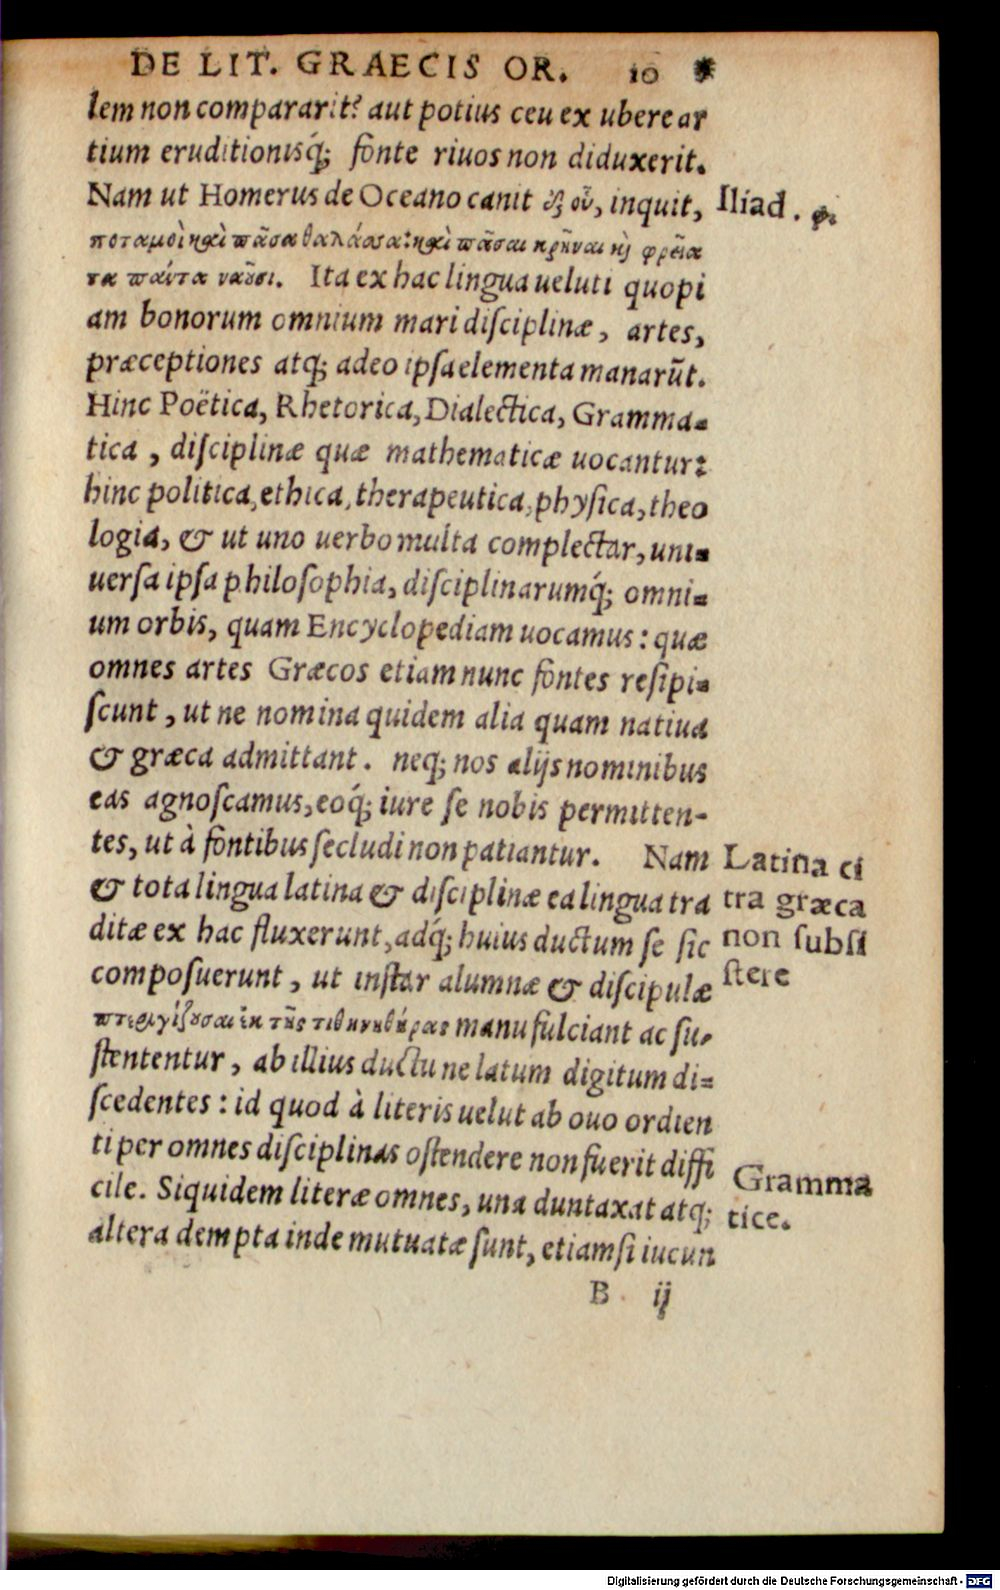 DE LIT. GRAECIS OR. 10
lem non compararit? aut potius ceu ex ubere ar
tium eruditionisq́; fonte riuos non diduxerit.
Nam ut Homerus de Oceano canit ἐξ οὗ, inquit,
Iliad. φ.
ποταμοὶ καὶ πᾶσα θαλάσσα: καὶ πᾶσαι κρῆναι καὶ φρεία
τα πάντα νάουσι. Ita ex hac lingua ueluti quopi
am bonorum omnium mari disciplinæ, artes,
præceptiones atq; adeo ipsa elementa manarūt.
Hinc Poëtica, Rhetorica, Dialectica, Gramma-
tica, disciplinæ quæ mathematicæ uocantur:
hinc politica, ethica, therapeutica, physica, theo
logia, & ut uno uerbo multa complectar, uni-
uersa ipsa philosophia, disciplinarumq́; omni-
um orbis, quam Encyclopediam uocamus: quæ
omnes artes Græcos etiam nunc fontes resipi-
scunt, ut ne nomina quidem alia quam natiua
& græca admittant. neq; nos alijs nominibus
eas agnoscamus, eoq́; iure se nobis permitten-
tes, ut à fontibus secludi non patiantur. Nam
& tota lingua latina & disciplinæ ea lingua tra
ditæ ex hac fluxerunt, adq́; huius ductum se sic
composuerunt, ut instar alumnæ & discipulæ
Latina ci
tra græca
non subsi
stere
ἐκ τῆς manu fulciant ac su-
stententur, ab illius ductu ne latum digitum di-
scedentes: id quod à literis uelut ab ouo ordien
ti per omnes disciplinas ostendere non fuerit diffi
cile. Siquidem literæ omnes, una duntaxat atq;
altera dempta inde mutuatæ sunt, etiamsi iucun
Gramma
tice.
B ij
Digitalisierung gefördert durch die Deutsche Forschungsgemeinschaft - DFG